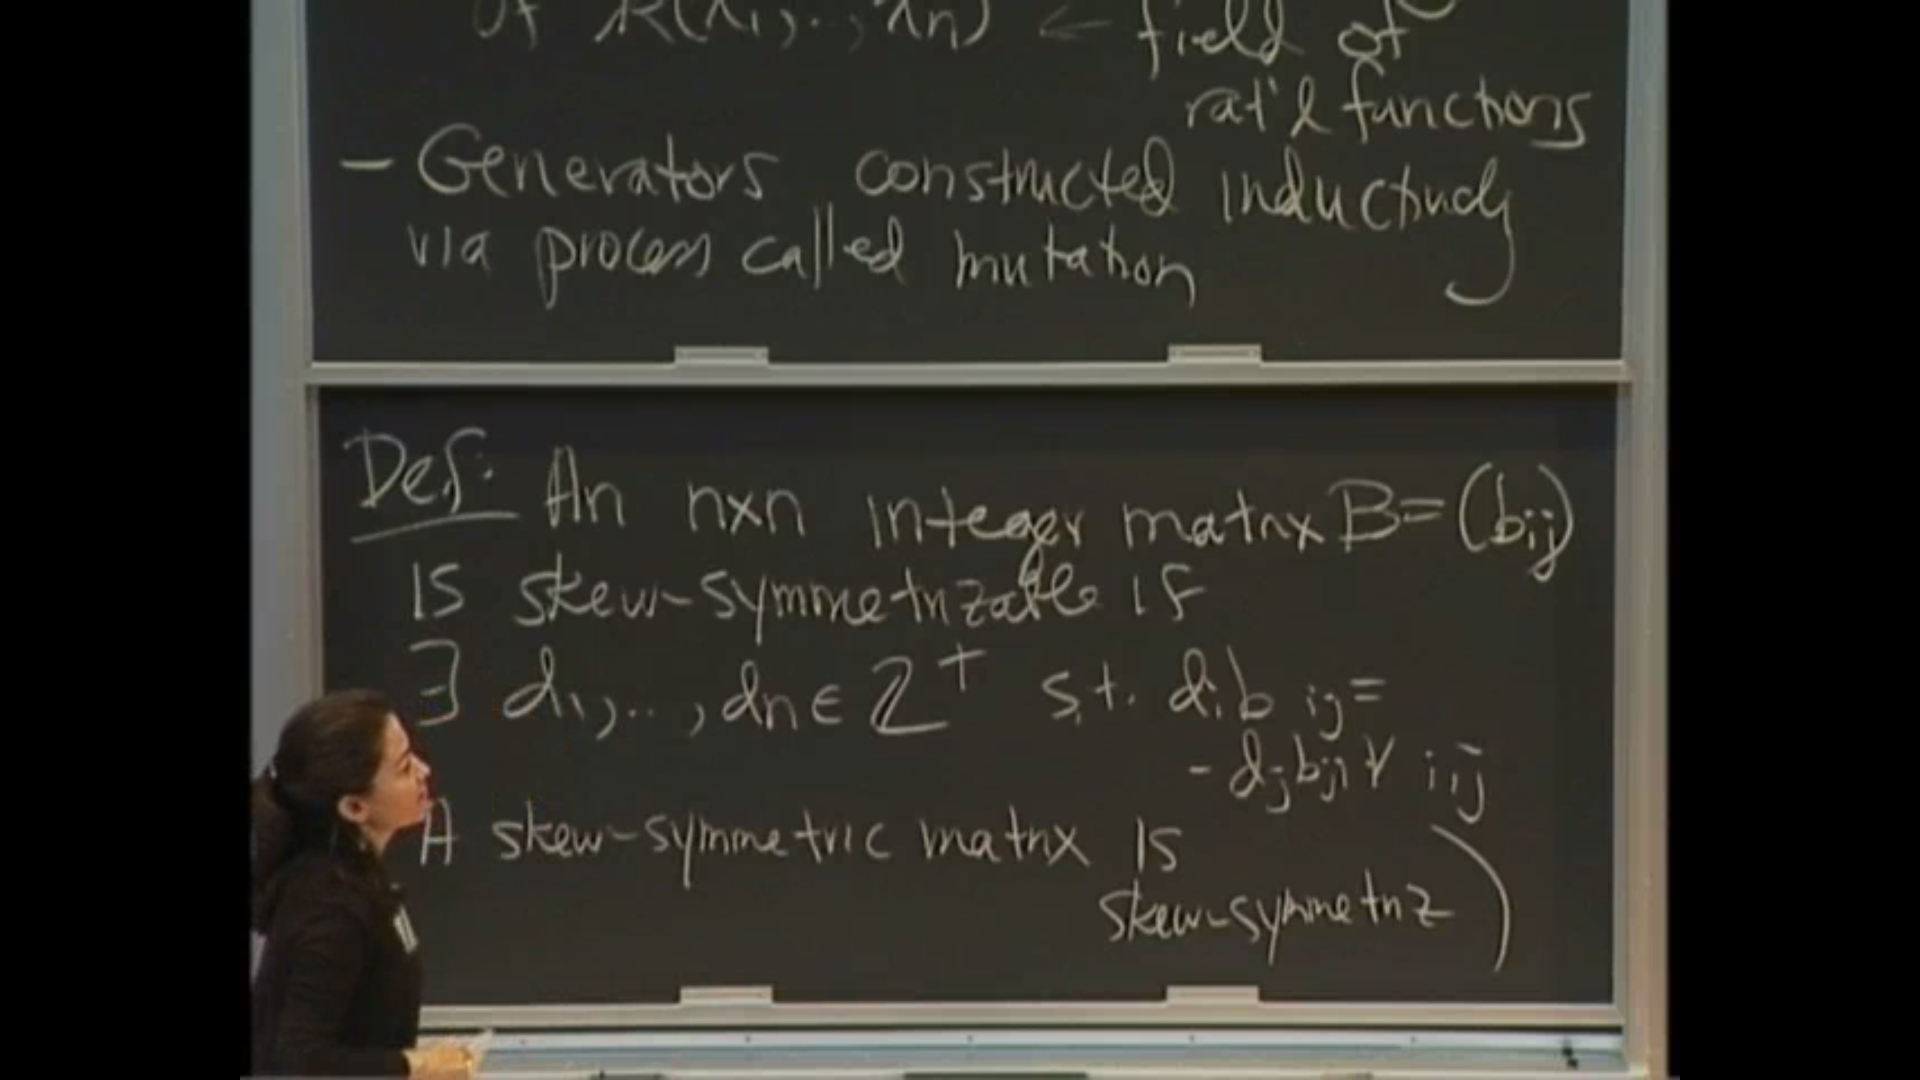 of k(x1,..,xn) ← field of
rat'l functions
- Generators constructed inductively
via process called mutation
Def: An nxn integer matrix B=(bij)
is skew-symmetrizable if
∃ d1,..,dn ∈ Z+ s.t. dibij=
-djbji ∀ i,j
A skew-symmetric matrix is
skew-symmetriz)